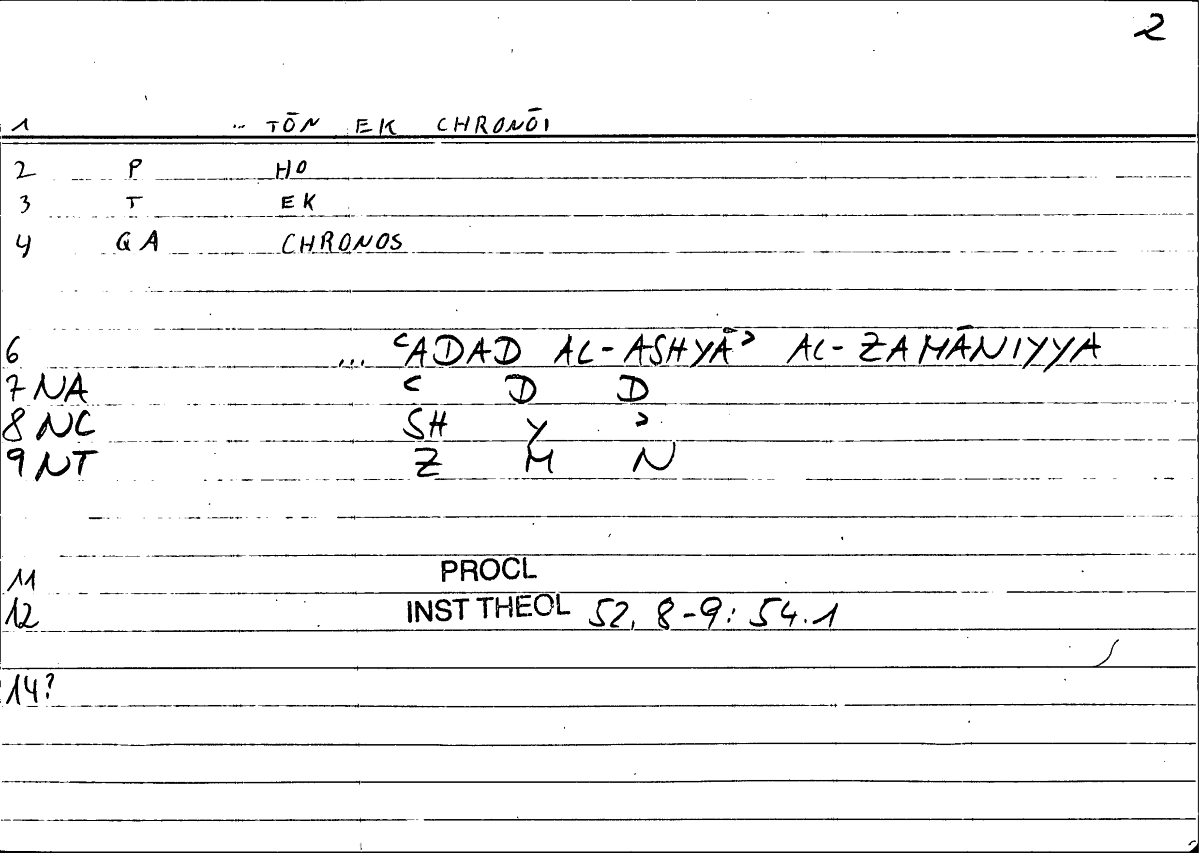 2
1 .. TŌN EK CHRONŌI
2 P HO
3 T EK
4 GA CHRONOS
6 ... ʿADAD AL-ASHYĀʾ AL-ZAMĀNIYYA
7 NA ʿ D D
8 NC SH Y ʾ
9 NT Z M N
11 PROCL
12 INST THEOL 52, 8-9: 54.1
14?